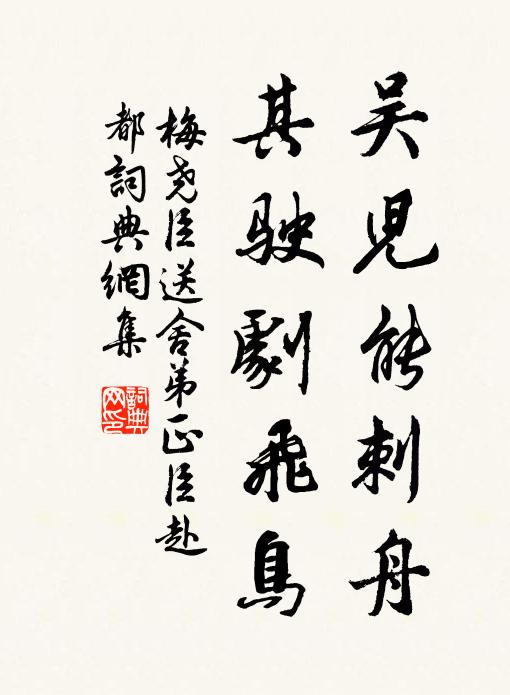 吴兒能刺舟
其駛劇飛鳥
梅堯臣送舍弟正臣赴
都詞典網集
詞典网印